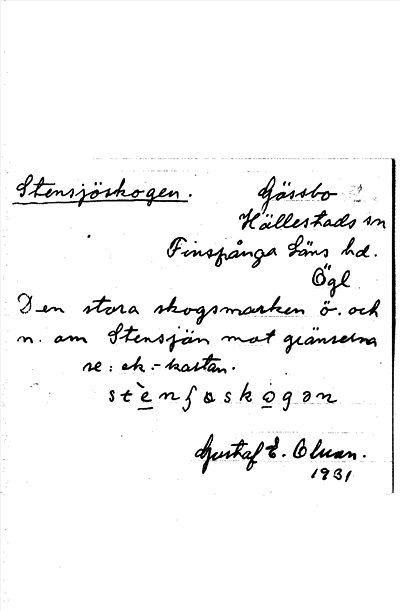 Stensjöskogen. Gössbo
Hällestads sn
Finspånga läns hd.
Ögl
Den stora skogsmarken ö. och
n. om Stensjön mot gränserna
se: ek.-kartan.
Gustaf E. Olsson.
1931